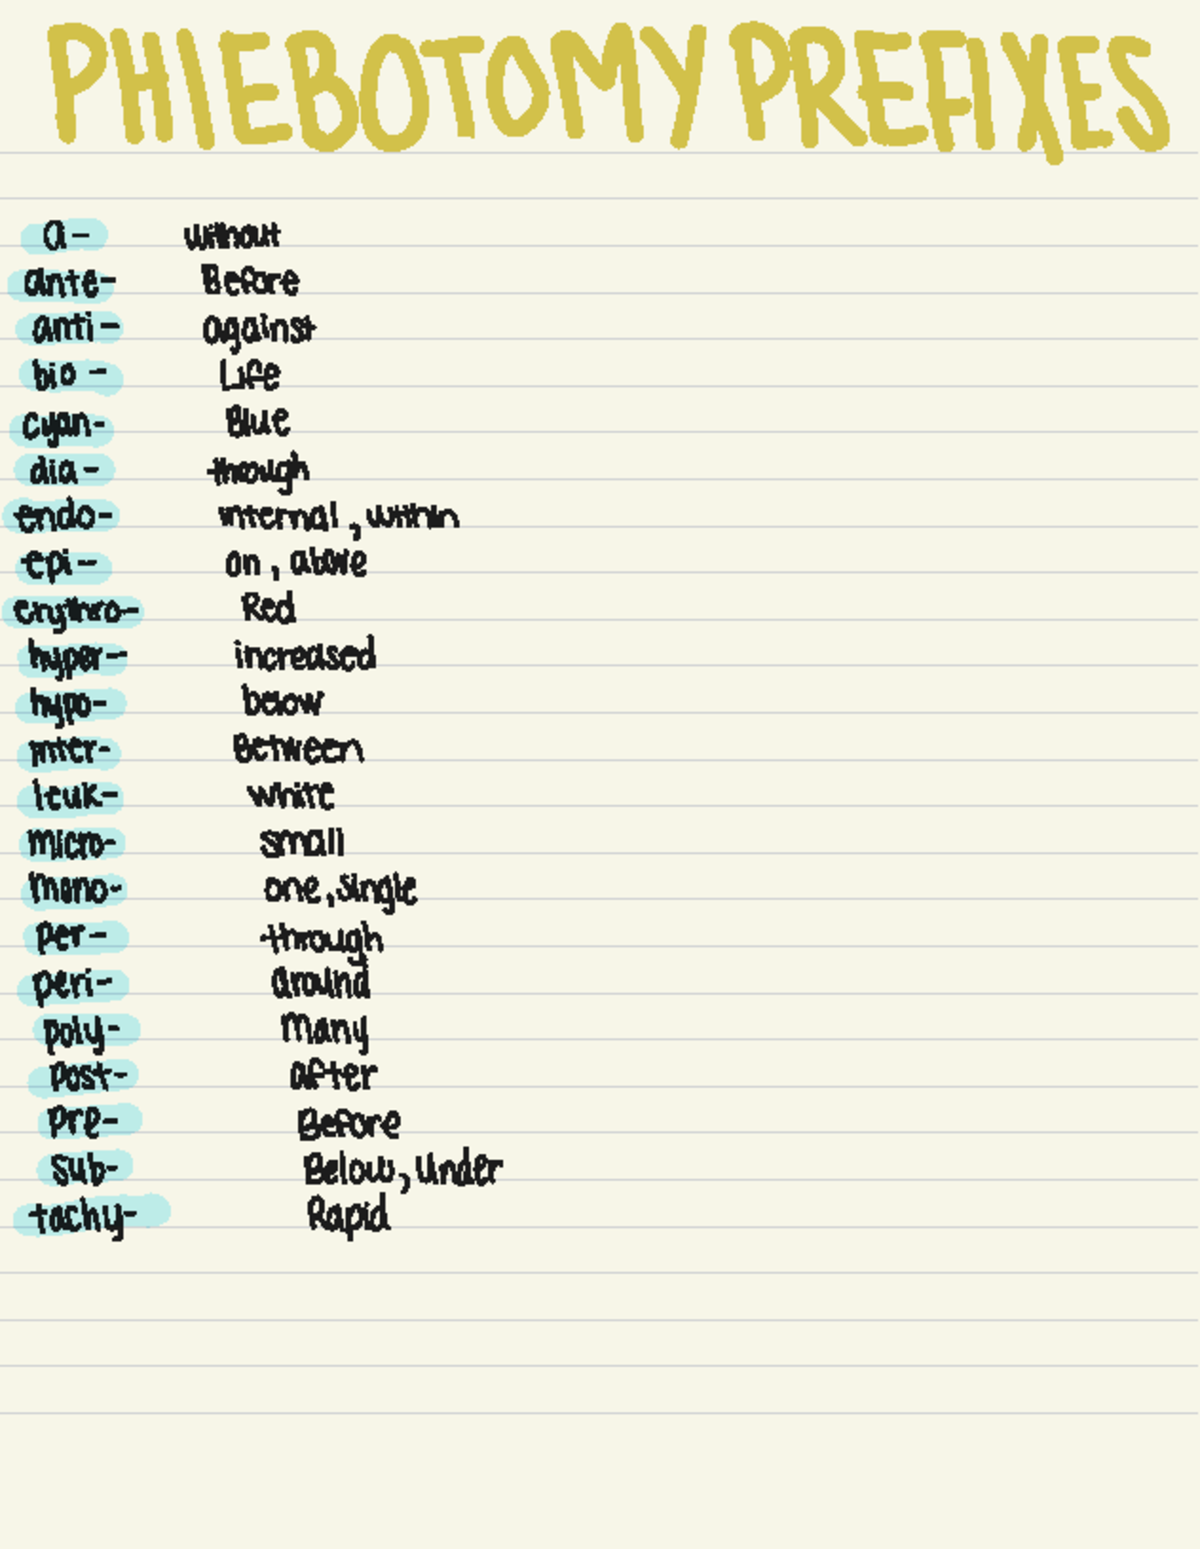 PHlEBOTOMY PREFIXES
a- without
ante- Before
anti- against
bio - Life
cyan- Blue
dia- through
endo- internal, within
epi- on, above
erythro- Red
hyper- increased
hypo- below
inter- Between
leuk- white
micro- small
mono- one, single
per- through
peri- around
poly- Many
post- after
pre- Before
sub- Below, Under
tachy- Rapid